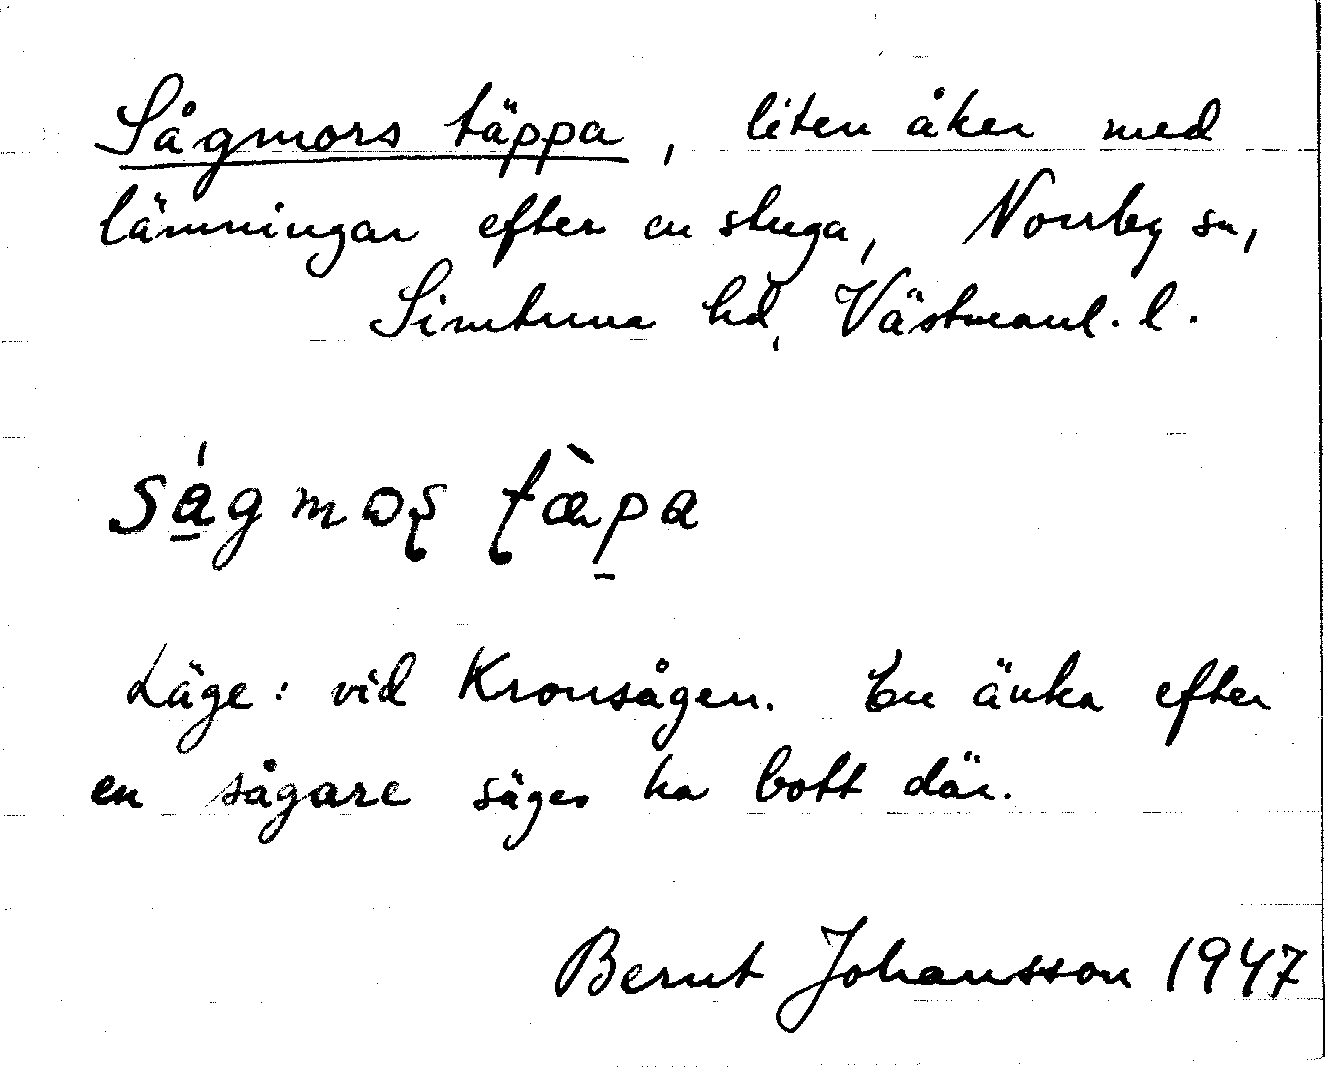 Sågmors täppa, liten åker med
lämningar efter en stuga, Norrby sn,
Simtuna hd, Västmanl. l.
ságmoş ƫæ̀pa
Läge: vid Kronsågen. En änka efter
en sågare säges ha bott där.
Bernt Johansson 1947